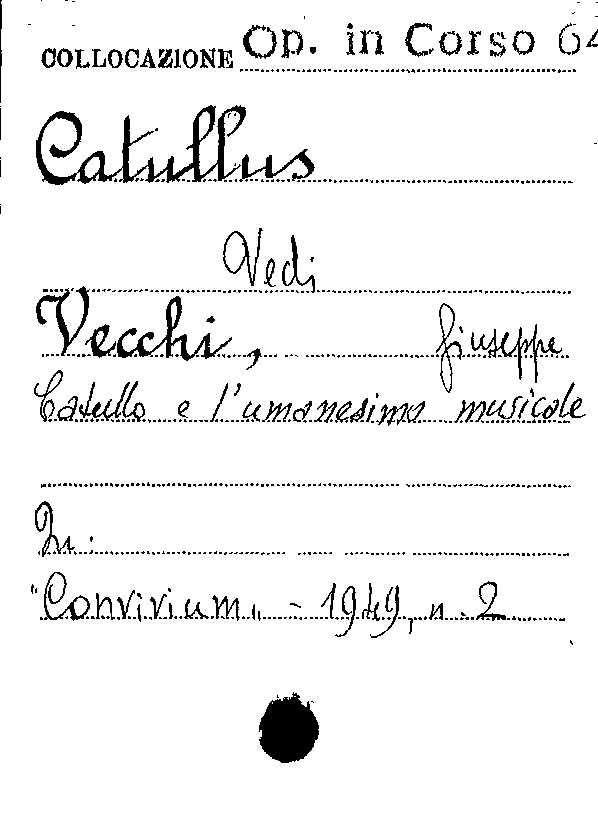 COLLOCAZIONE Op. in Corso 64
Catullus
Vedi
Vecchi, Giuseppe
Catullo e l'umanesimo musicale
In:
"Convivium" - 1949, n. 2